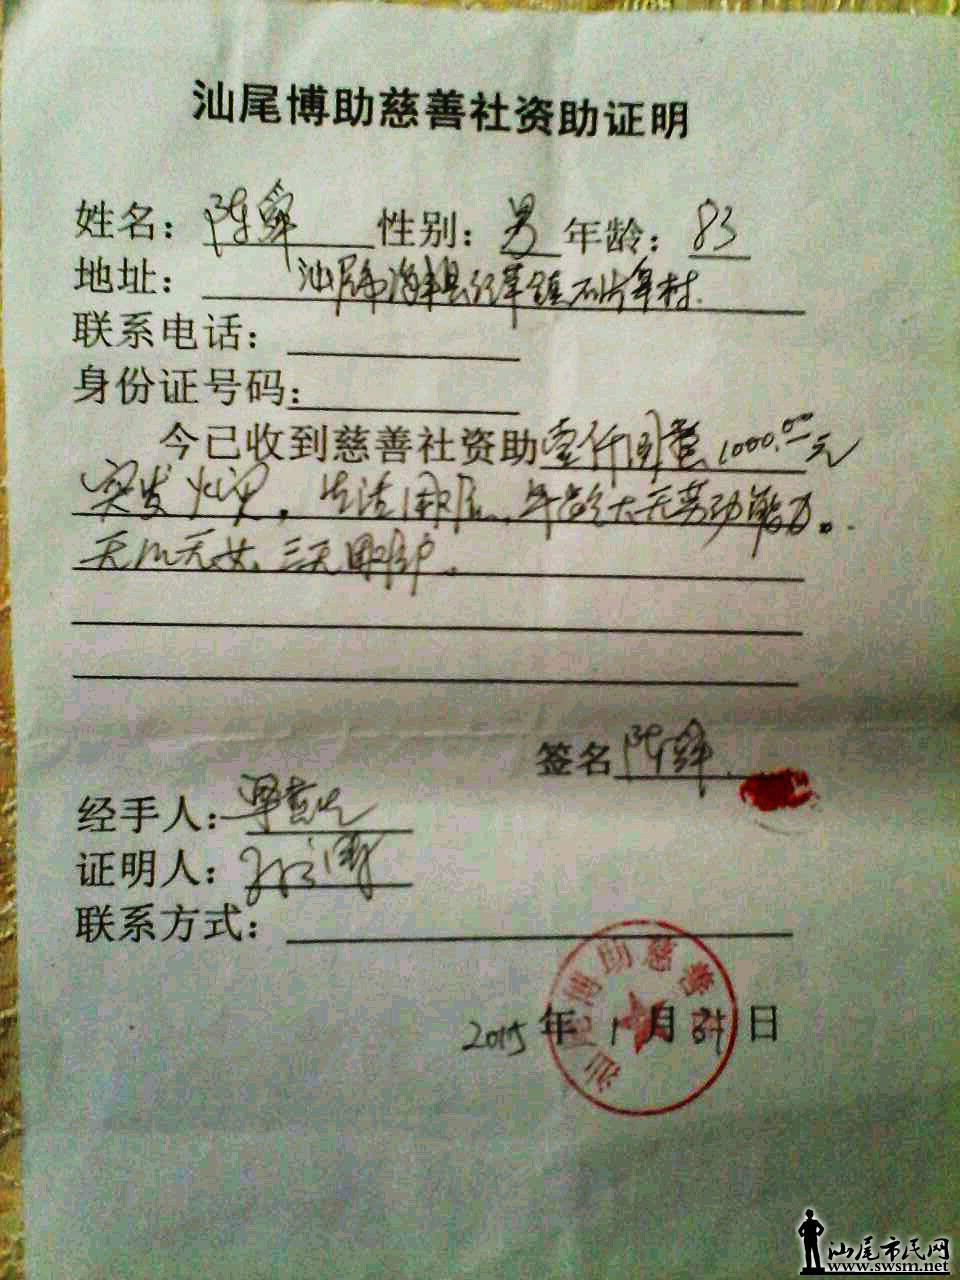 汕尾博助慈善社资助证明
姓名：陈 性别：男 年龄：83
地址：汕尾市海丰县 镇 村
联系电话：
身份证号码：
今已收到慈善社资助壹仟圆整1000.00元
突发 ，生活困 ，年龄大无劳动能力。
无儿无女，
签名 陈
经手人：
证明人：
联系方式：
2015年1月 日
汕尾博助慈善社
汕尾市民网
www.swsm.net